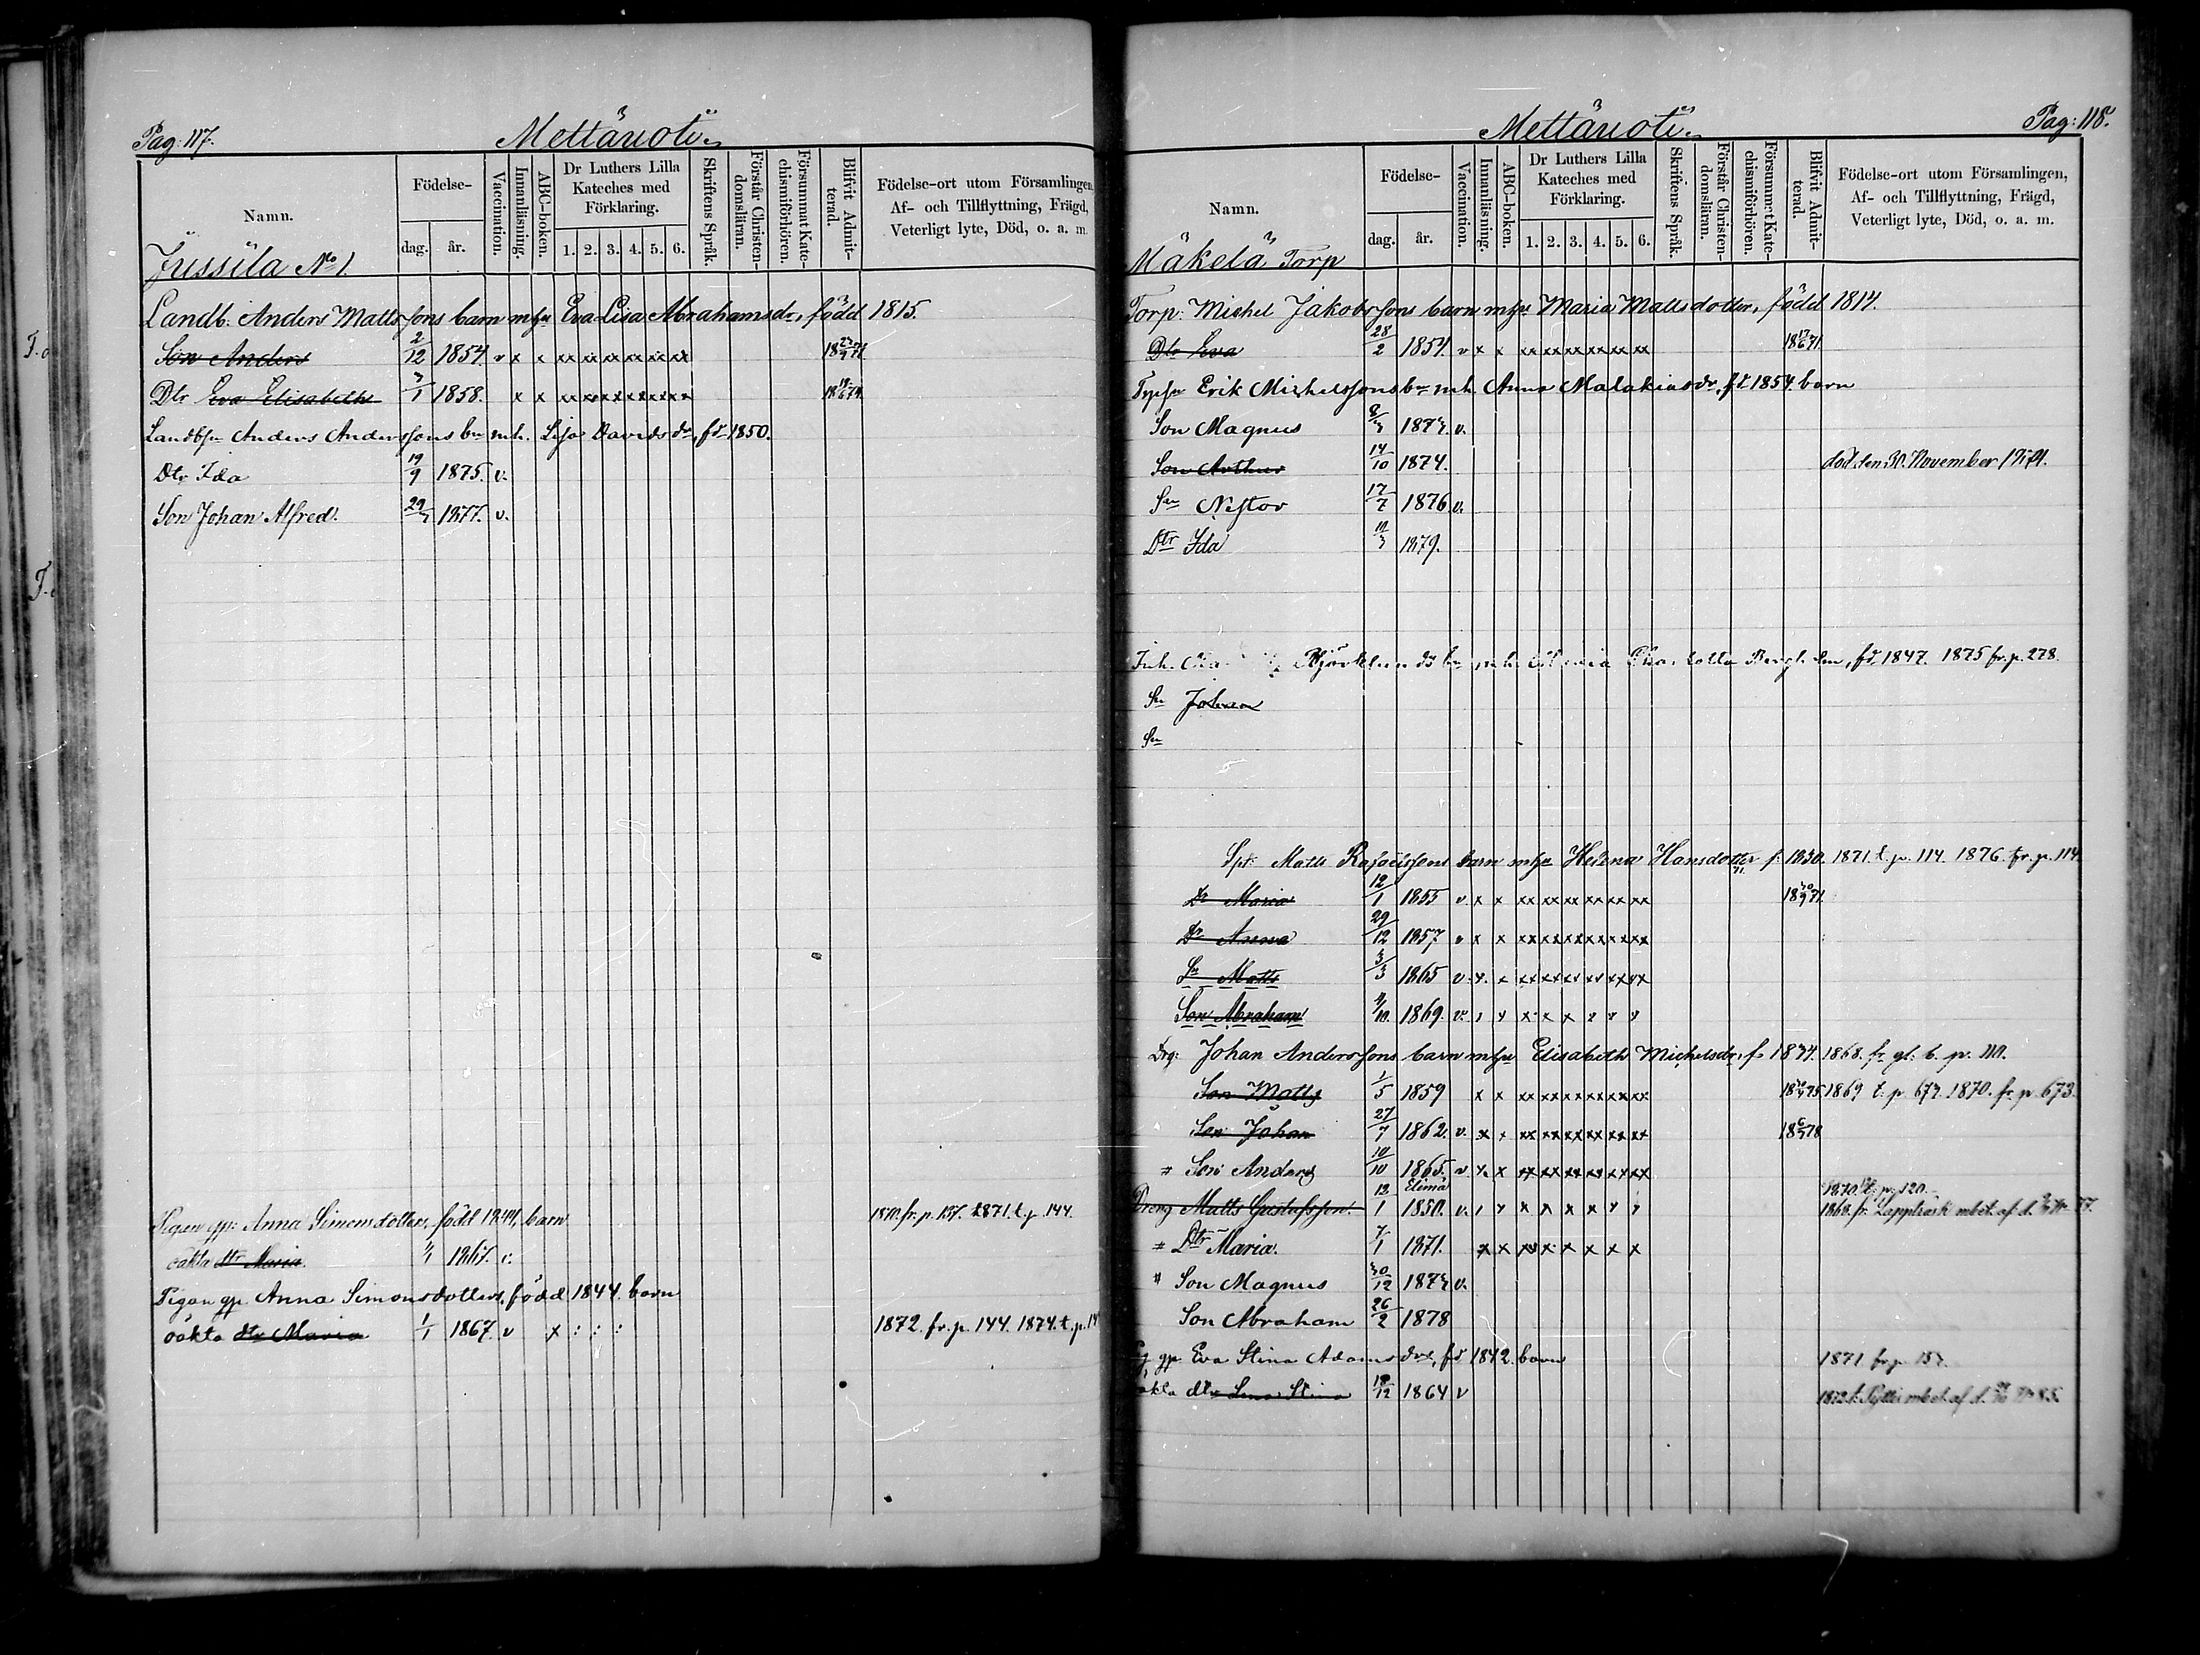 Pag: 117.
Mettäxoti
Namn.
Födelse-
dag.
år.
Vaccination.
Innanläsning.
ABC-boken.
Dr Luthers Lilla
Kateches med
Förklaring.
1. 2. 3. 4. 5. 6.
Skriftens Språk.
Förstår Christen-
domsläran.
Försummat Kate-
chismiförhören.
Blifvit Admit-
terad.
Födelse-ort utom Församlingen,
Af- och Tillflyttning, Frägd,
Veterligt lyte, Död, o. a. m.
Jussila No 1
Landb. Anders Mattssons barn mhu Eva Lisa Abrahamsdr, född 1815.
Son Anders 2/12 1854. v x x xx xx xx xx xx xx
Dtr Eva Elisabeth 3/1 1858. x x xx xx xx xx xx xx
Landbsn Anders Anderssons bn mh. Lisa Davidsdr, fd 1850.
Dtr Ida 19/9 1875. v.
Son Johan Alfred. 1877. v.
Pigan gp: Anna Simonsdotter, född 1844, barn 1871. t.p. 144.
oäkta dtr Maria. 1/1 1867. v.
Pigan gp. Anna Simonsdotters, född 1844. barn
oäkta dtr Maria 1/1 1867. v x : : : 1872. fr. p. 144. 1874. t. p. 14
Mettäxoti
Pag: 118.
Namn.
Födelse-
dag.
år.
Vaccination.
Innanläsning.
ABC-boken.
Dr Luthers Lilla
Kateches med
Förklaring.
1. 2. 3. 4. 5. 6.
Skriftens Språk.
Förstår Christen-
domsläran.
Försummat Kate-
chismiförhören.
Blifvit Admit-
terad.
Födelse-ort utom Församlingen,
Af- och Tillflyttning, Frägd,
Veterligt lyte, Död, o. a. m.
Mäkelä Torp
Torp: Michel Jakobssons barn mhu Maria Mattsdotter, född 1814.
Dtr Eva 28/2 1854. v x x xx xx xx xx xx xx
Torpsn Erik Michelssons bn mh. Anna Malakiasdr, fd 1854. barn
Son Magnus 8/3 1873. v.
Son Arthur 14/10 1874. död den 30. November 1874.
Sn Nestor 17/7 1876 v.
Dtr Ida 1879.
Inh. Björklunds bn mh. Maria Charlotta, fd 1847. 1875 fr. p. 278.
Sn Johan
Sn
Matts Rafaelssons barn mhu Helena Hansdotter f. 1830. 1871. t. p. 114. 1876. fr. p. 114
Dr Maria 12/1 1855 v. x x xx xx xx xx xx xx
Dr Anna 29/12 1857 v x x xx xx xx xx xx xx
Sn Matts 3/3 1865 v. x. x xx xx xx xx xx xx
Son Abraham 1869. v. x x x x x x x x
Drg: Johan Anderssons barn mhu Elisabeth Michelsdr, f. 1834. 1868. fr gl. b. p.
Son Matts 1/5 1859 x x xx xx xx xx xx xx 1869 t. p. 673. 1870. fr. p. 673.
Son Johan 27/7 1862. v. x x xx xx xx xx xx xx
" Son Anders 10/10 1865. v x. x xx xx xx xx xx xx
Elimä
Dreng Matts Gustafsson. 12/1 1850. v. x x x x x x x x
" Dtr Maria. 7/1 1871. x x x x x x x x
" Son Magnus 30/12 1873 v.
Son Abraham 26/2 1878
gp. Eva Stina Adamsdrs, fd 1842. barn 1871 fr. p.
oäkta dtr Lena Stina 1864 v